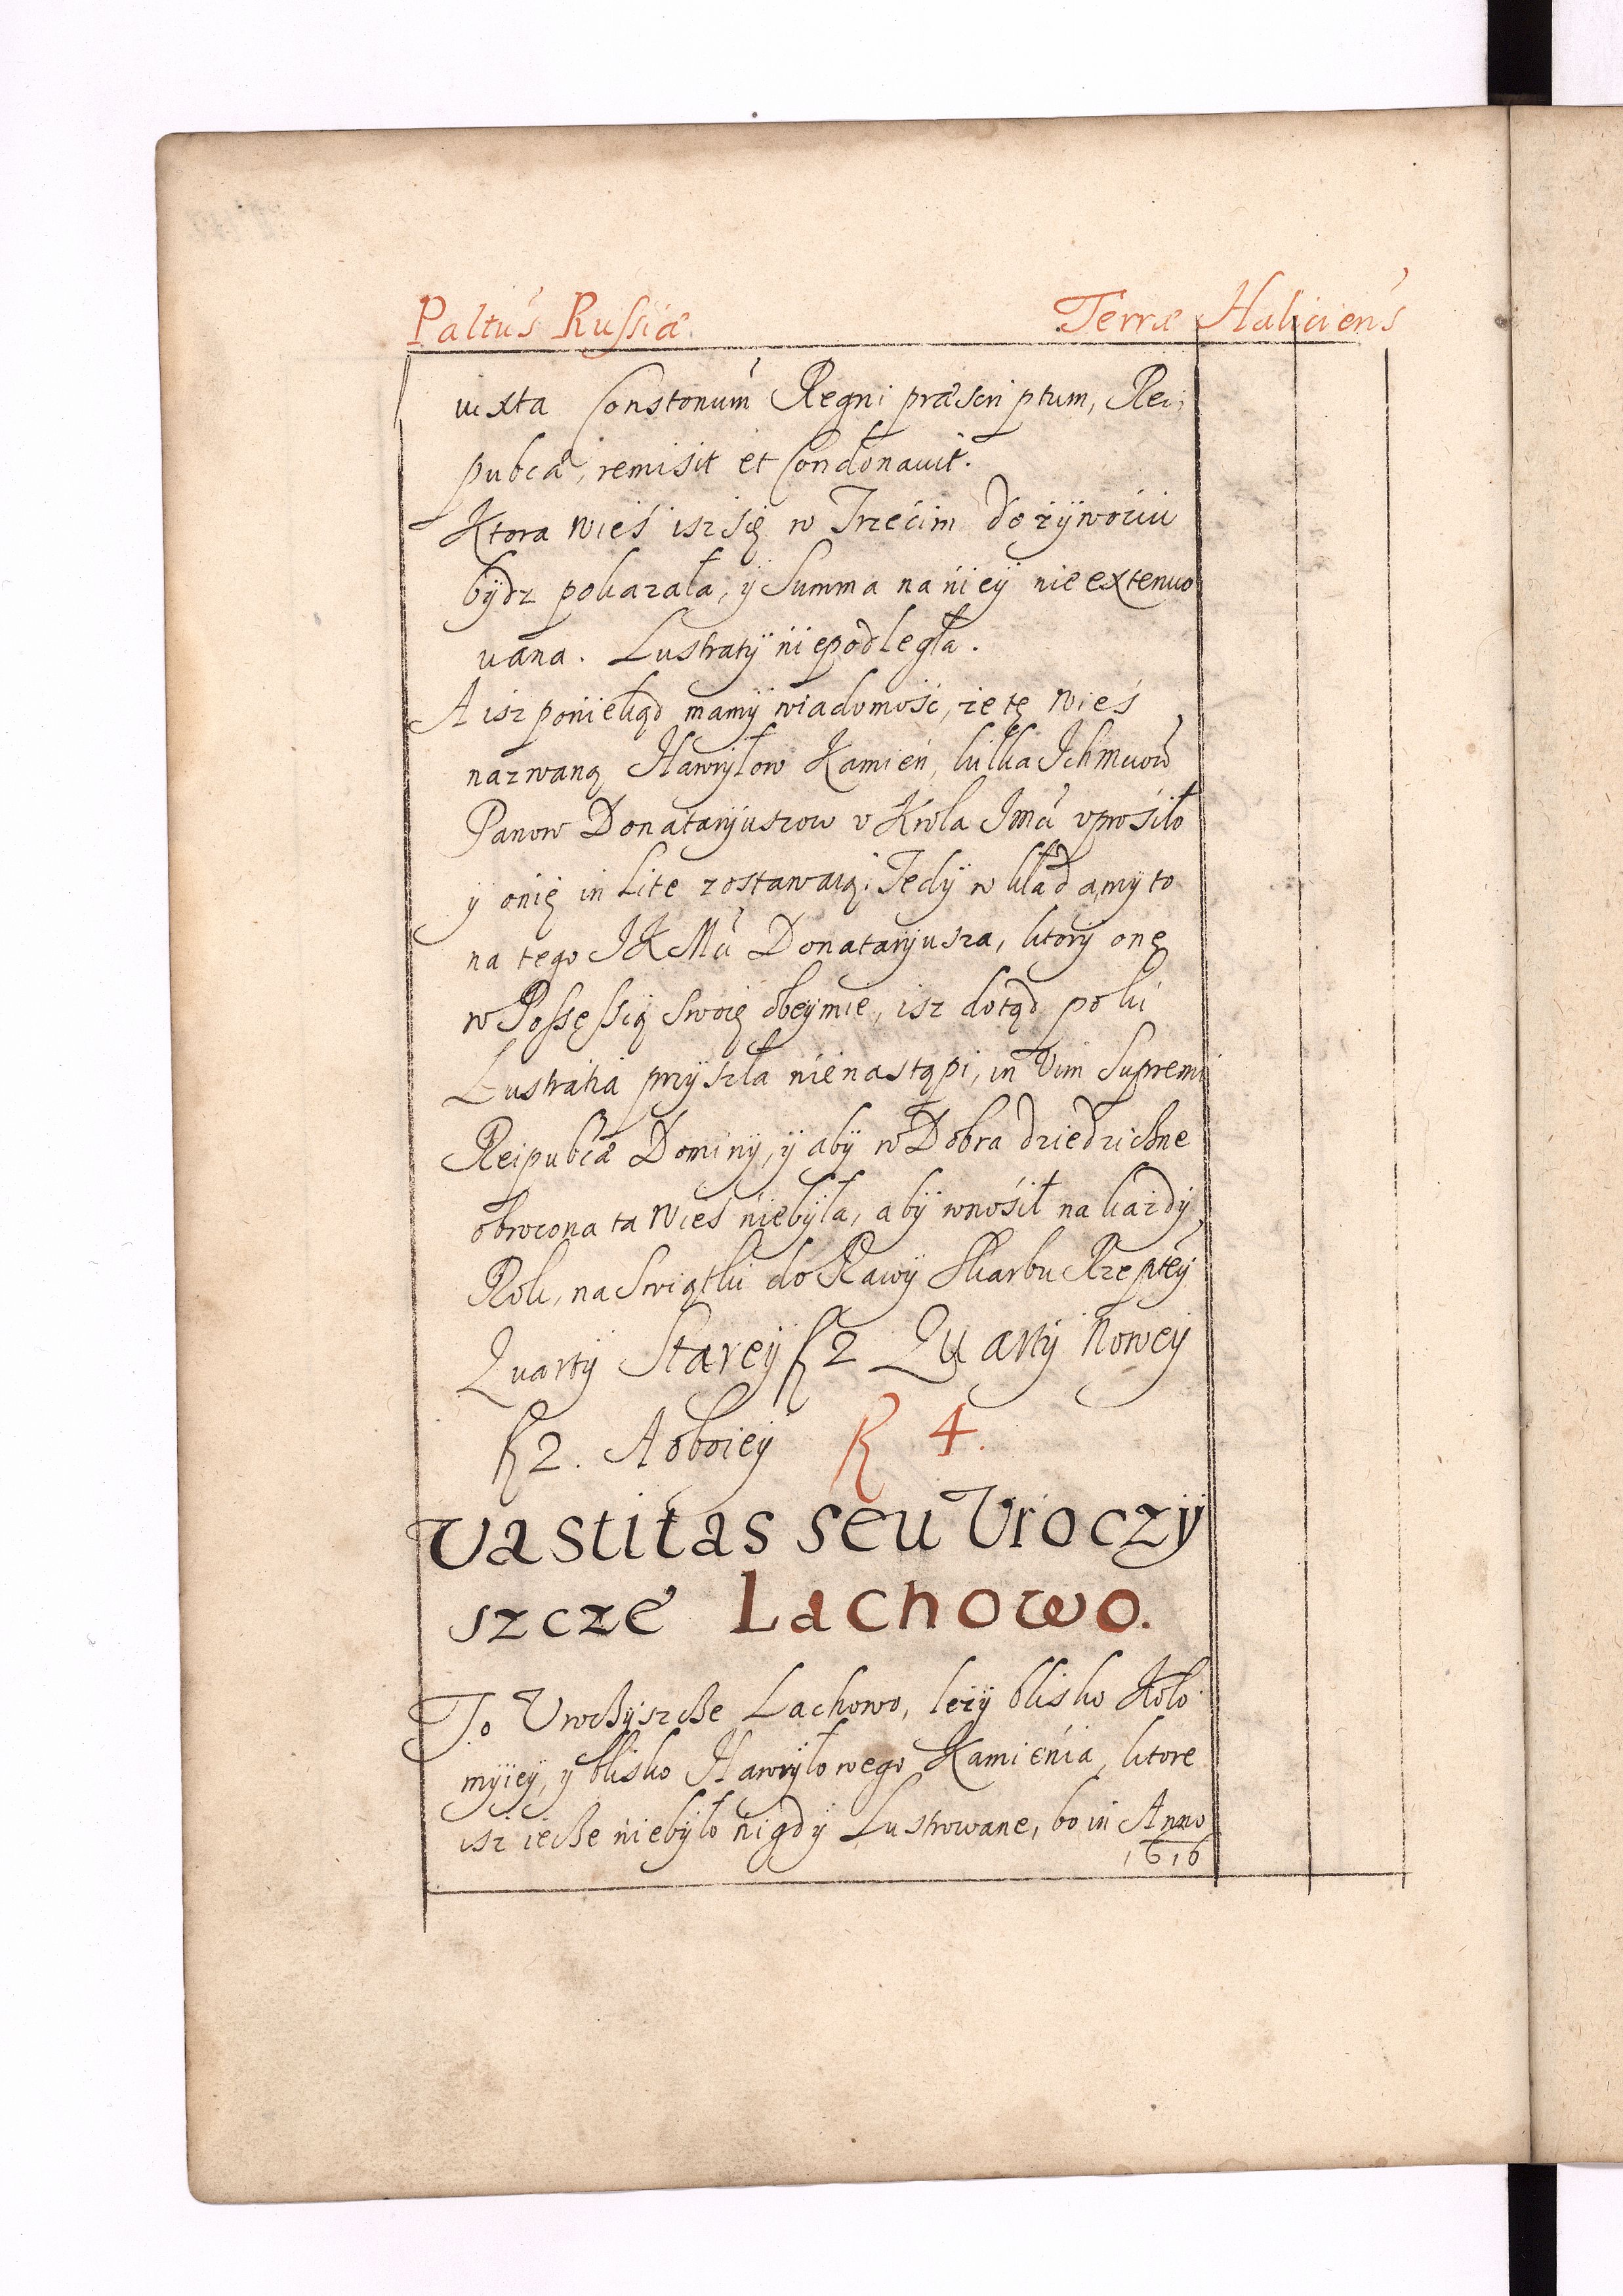 Paltus Russiæ. Terræ Haliciens
iuxta Constonum Regni præscriptum, Rei
pubcæ, remisit et Condonauit.
Ktora wieś isz się w Trzećim dożÿwociu
bÿdz pokazała, ÿ Summa na nieÿ nie extenuo
uana. Lustratÿ niepodległa.
A isz poniekąd mamÿ wiadomość, że tę wieś
nazwaną Hawryłow Kamień, kilka Ichmuow
Panow Donataryuszow v Krola Imci vprosiło
ÿ onię in Lite zostawaią; Tedÿ wkładamÿ to
na tego JKMci Donataryusza, ktorÿ onę
w Possęssią swoię obeÿmie, isz dotąd poki
Lustratia przÿszła nienastąpi, in Vim Supremi
Reipubcæ Dominÿ, ÿ abÿ w Dobra dziedziczne
obrocona ta wieś niebÿła, abÿ wnosił na kazdÿ
Rok, na Swiątki do Rawÿ Skarbu Rzeptey
Quartÿ Stareÿ f 2 Quartÿ Noweÿ
f 2. A oboieÿ f 4.
Vastitas seu Vroczÿ
szcze Lachowo.
To Vroczÿszcze Lachowo, leżÿ blisko Koło
mÿieÿ, ÿ blisko Hawryłowego Kamienia, ktore
isz iescze niebÿło nigdÿ Lustrowane, bo in Anno
1616